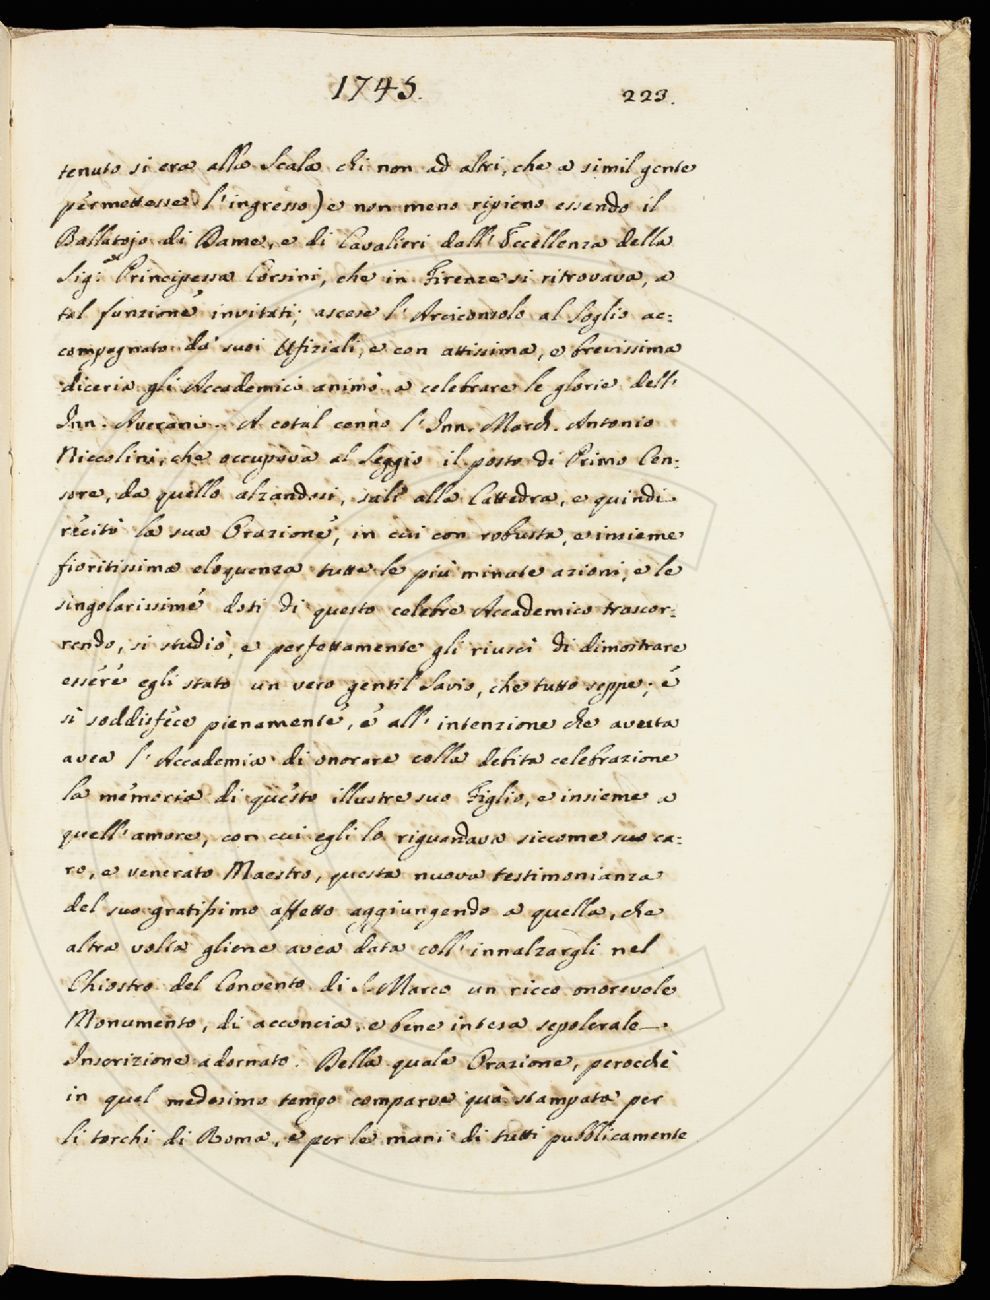 1745.
223.
tenuto si era alla Scala chi non ad altri, che a simil gente
permettesse l'ingresso) e non meno ripieno essendo il
Ballatojo di Dame, e di Cavalieri dall'Eccellenza della
Sig.ra Principessa Corsini, che in Firenze si ritrovava, a
tal funzione invitati; ascese l'Arciconsolo al Soglio ac=
compagnato da' suoi Ufiziali, e con attissima, e brevissima
diceria gli Accademici animò a celebrare le glorie dell'
Inn. Averani. A cotal cenno l'Inn. March. Antonio
Niccolini, che occupava al Seggio il posto di Primo Cen=
sore, da quello alzandosi, salì alla Cattedra, e quindi
recitò la sua Orazione, in cui con robusta, e insieme
fioritissima eloquenza tutte le più minute azioni, e le
singolarissime doti di questo celebre Accademico trascor=
rendo, si studiò, e perfettamente gli riuscì di dimostrare
essere egli stato un vero gentil Savio, che tutto seppe; e
sì soddisfece pienamente, e all'intenzione che avuta
avea l'Accademia di onorare colla debita celebrazione
la memoria di questo illustre suo Figlio, e insieme a
quell'amore, con cui egli lo riguardava siccome suo ca=
ro, e venerato Maestro, questa nuova testimonianza
del suo gratissimo affetto aggiungendo a quella, che
altra volta gliene avea data coll'innalzargli nel
Chiostro del Convento di S. Marco un ricco onorevole
Monumento, di acconcia, e bene intesa sepolcrale
Inscrizione adornato. Della quale Orazione, perocchè
in quel medesimo tempo comparve quà stampata per
li torchi di Roma, e per le mani di tutti pubblicamente